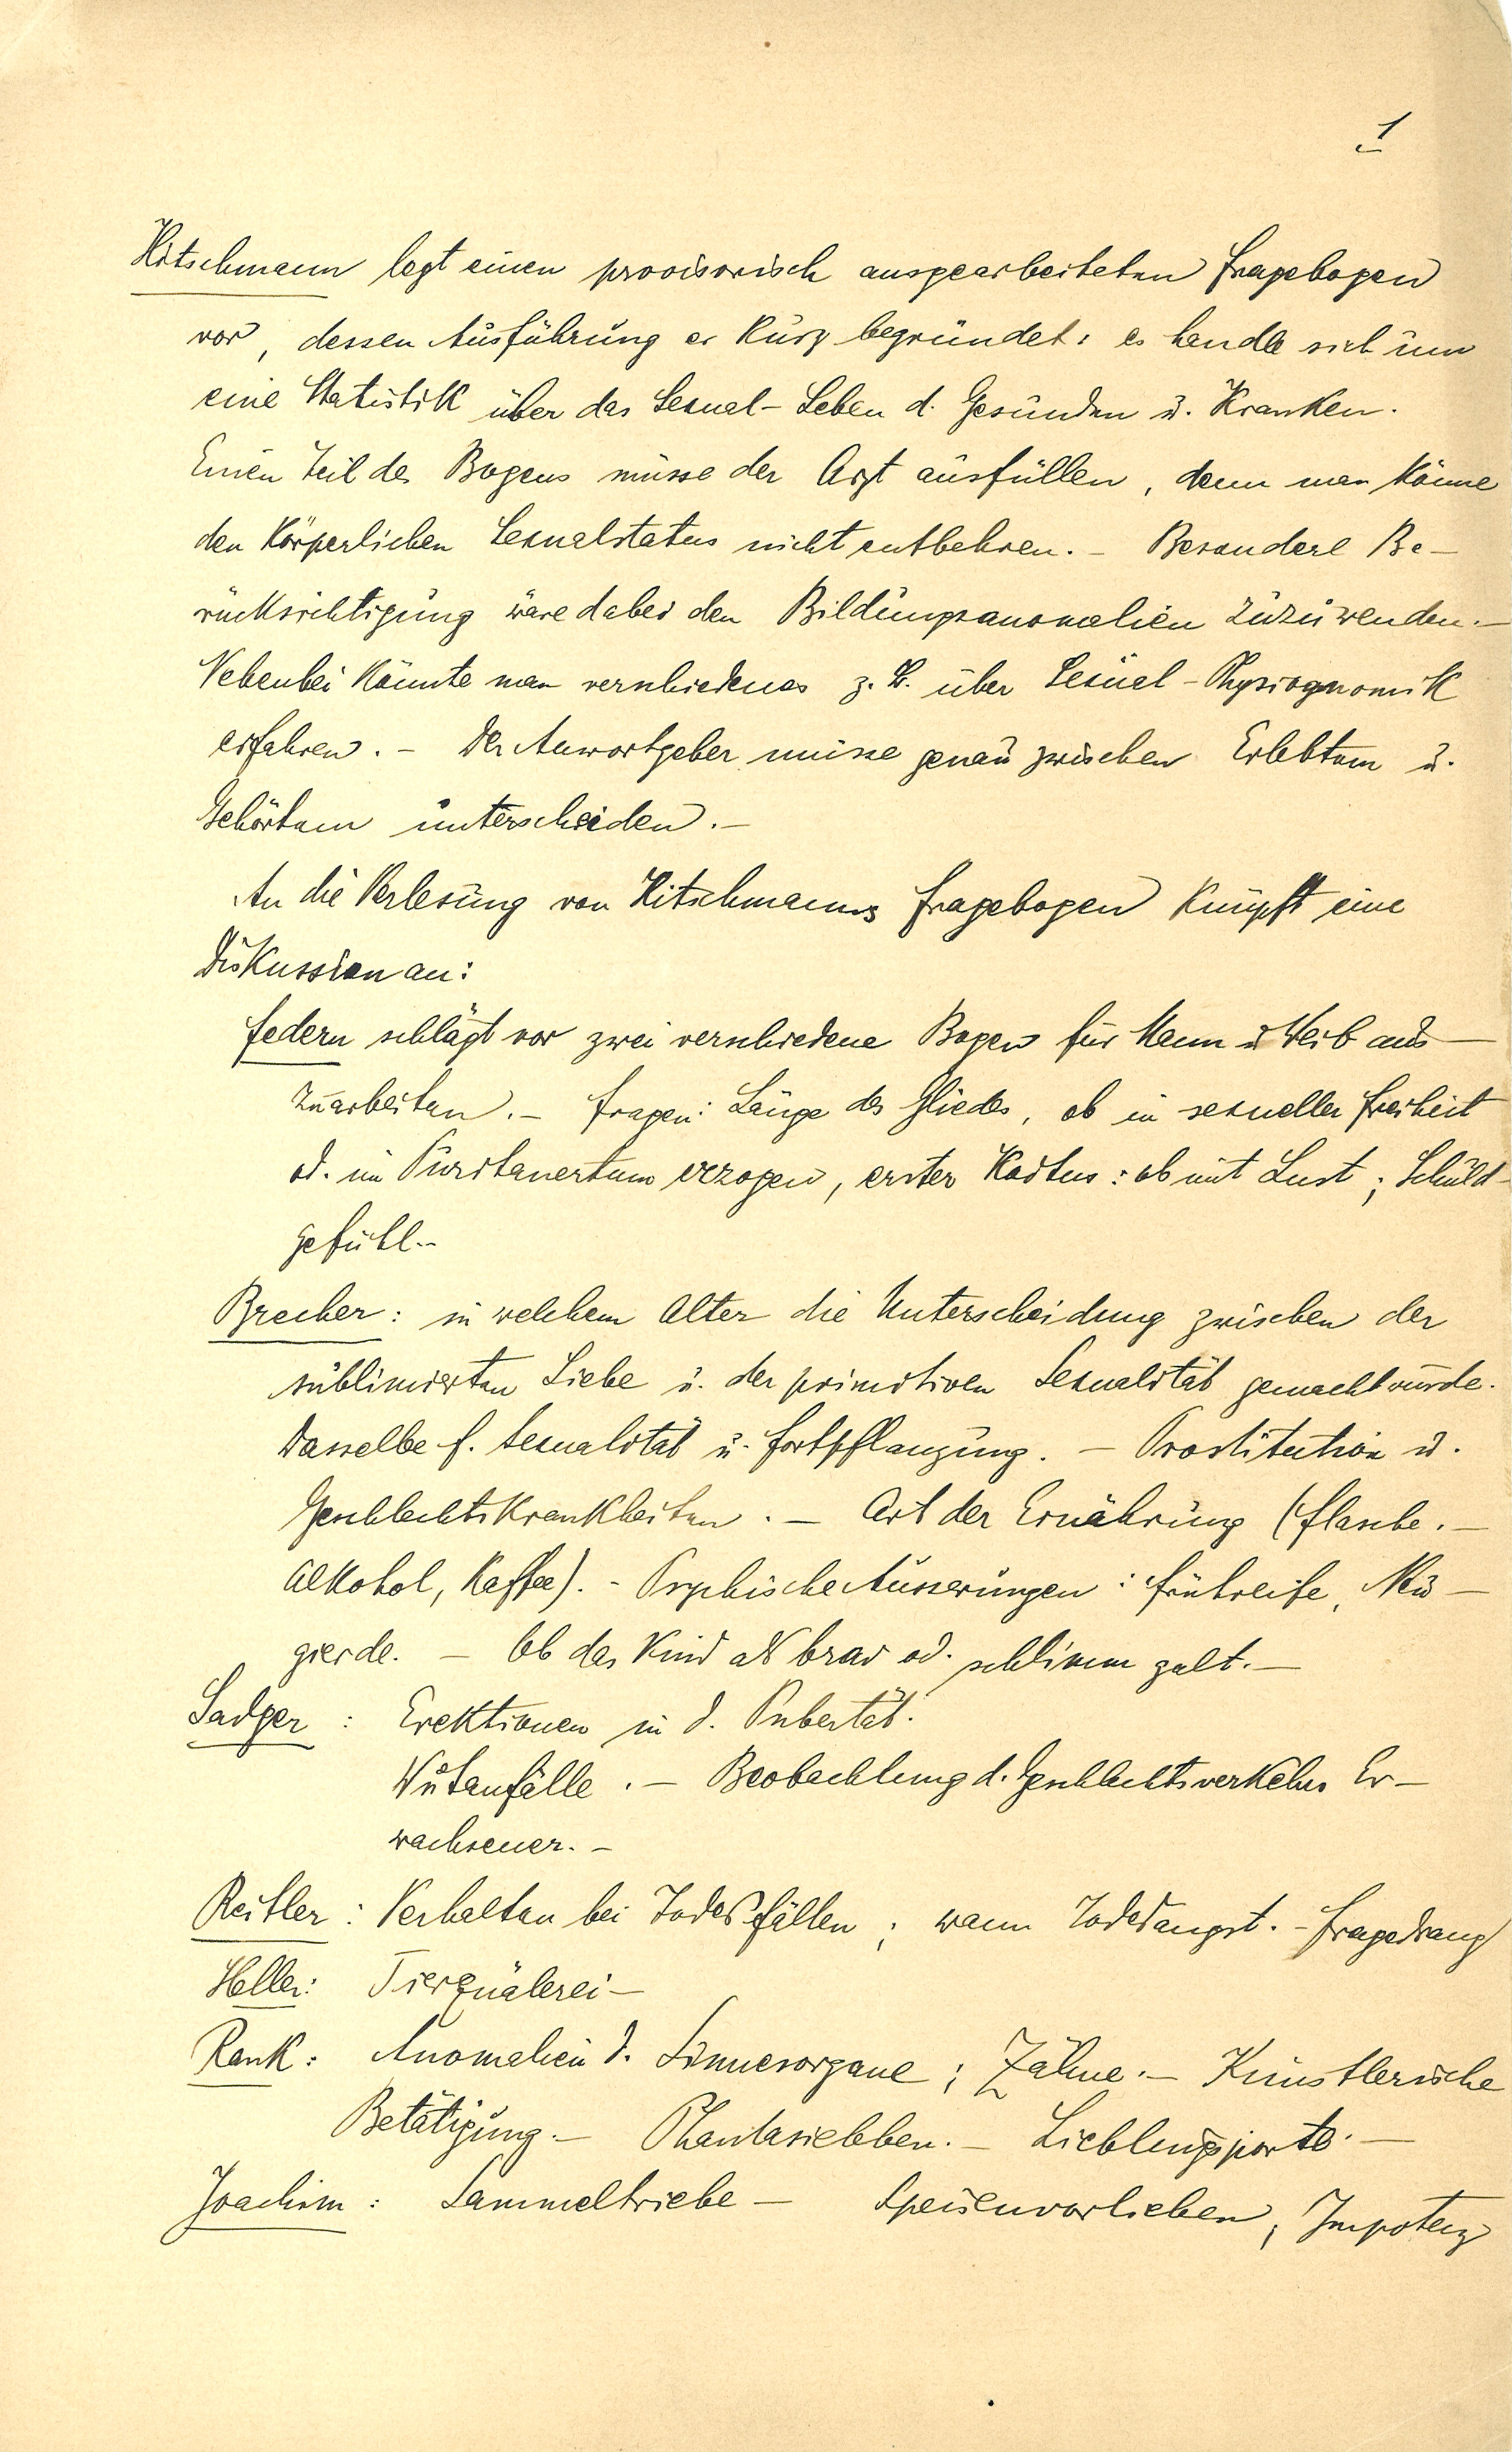 1
Hitschmann legt einen provisorisch ausgearbeiteten Fragebogen
vor, dessen Ausführung er kurz begründet: es handle sich um
eine Statistik über das Sexual-Leben d. Gesunden u. Kranken.
Einen Teil des Bogens müsse der Arzt ausfüllen, denn man könne
den körperlichen Sexualstatus nicht entbehren. – Besondere Be-
rücksichtigung wäre dabei den Bildungsanomalien zuzuwenden. –
Nebenbei könnte man verschiedenes z. B. über Sexual-Physiognomik
erfahren. – Der Anwortgeber müsse genau zwischen Erlebtem u.
Gehörtem unterscheiden. –
An die Verlesung von Hitschmanns Fragebogen knüpft eine
Diskussion an:
Federn schlägt vor zwei verschiedene Bogen für Mann u Weib aus-
zuarbeiten. – Fragen: Länge des Gliedes, ob in sexueller Freiheit
od. im Puritanertum erzogen, erster Koitus: ob mit Lust; Schuld-
gefühl. –
Brecher: in welchem Alter die Unterscheidung zwischen der
sublimierten Liebe u. der primitiven Sexualität gemacht wurde.
Dasselbe f. Sexualität u. Fortpflanzung. – Prostitution u.
Geschlechtskrankheiten. – Art der Ernährung (Flasche. –
Alkohol, Kaffee). - Psychische Äusserungen: Frühreife, Neu-
gierde. – Ob das Kind als brav od. schlimm galt. –
Sadger: Erektionen in d. Pubertät.
Wutanfälle. – Beobachtung d. Geschlechtsverkehrs Er-
wachsener. –
Reitler: Verhalten bei Todesfällen; wann Todesangst. - Fragedrang
Heller: Tierquälerei –
Rank: Anomalien d. Sinnesorgane; Zähne. – Künstlerische
Betätigung. – Phantasieleben. – Lieblingsporte. –
Joachim: Sammeltriebe – Speisenvorlieben, Impotenz